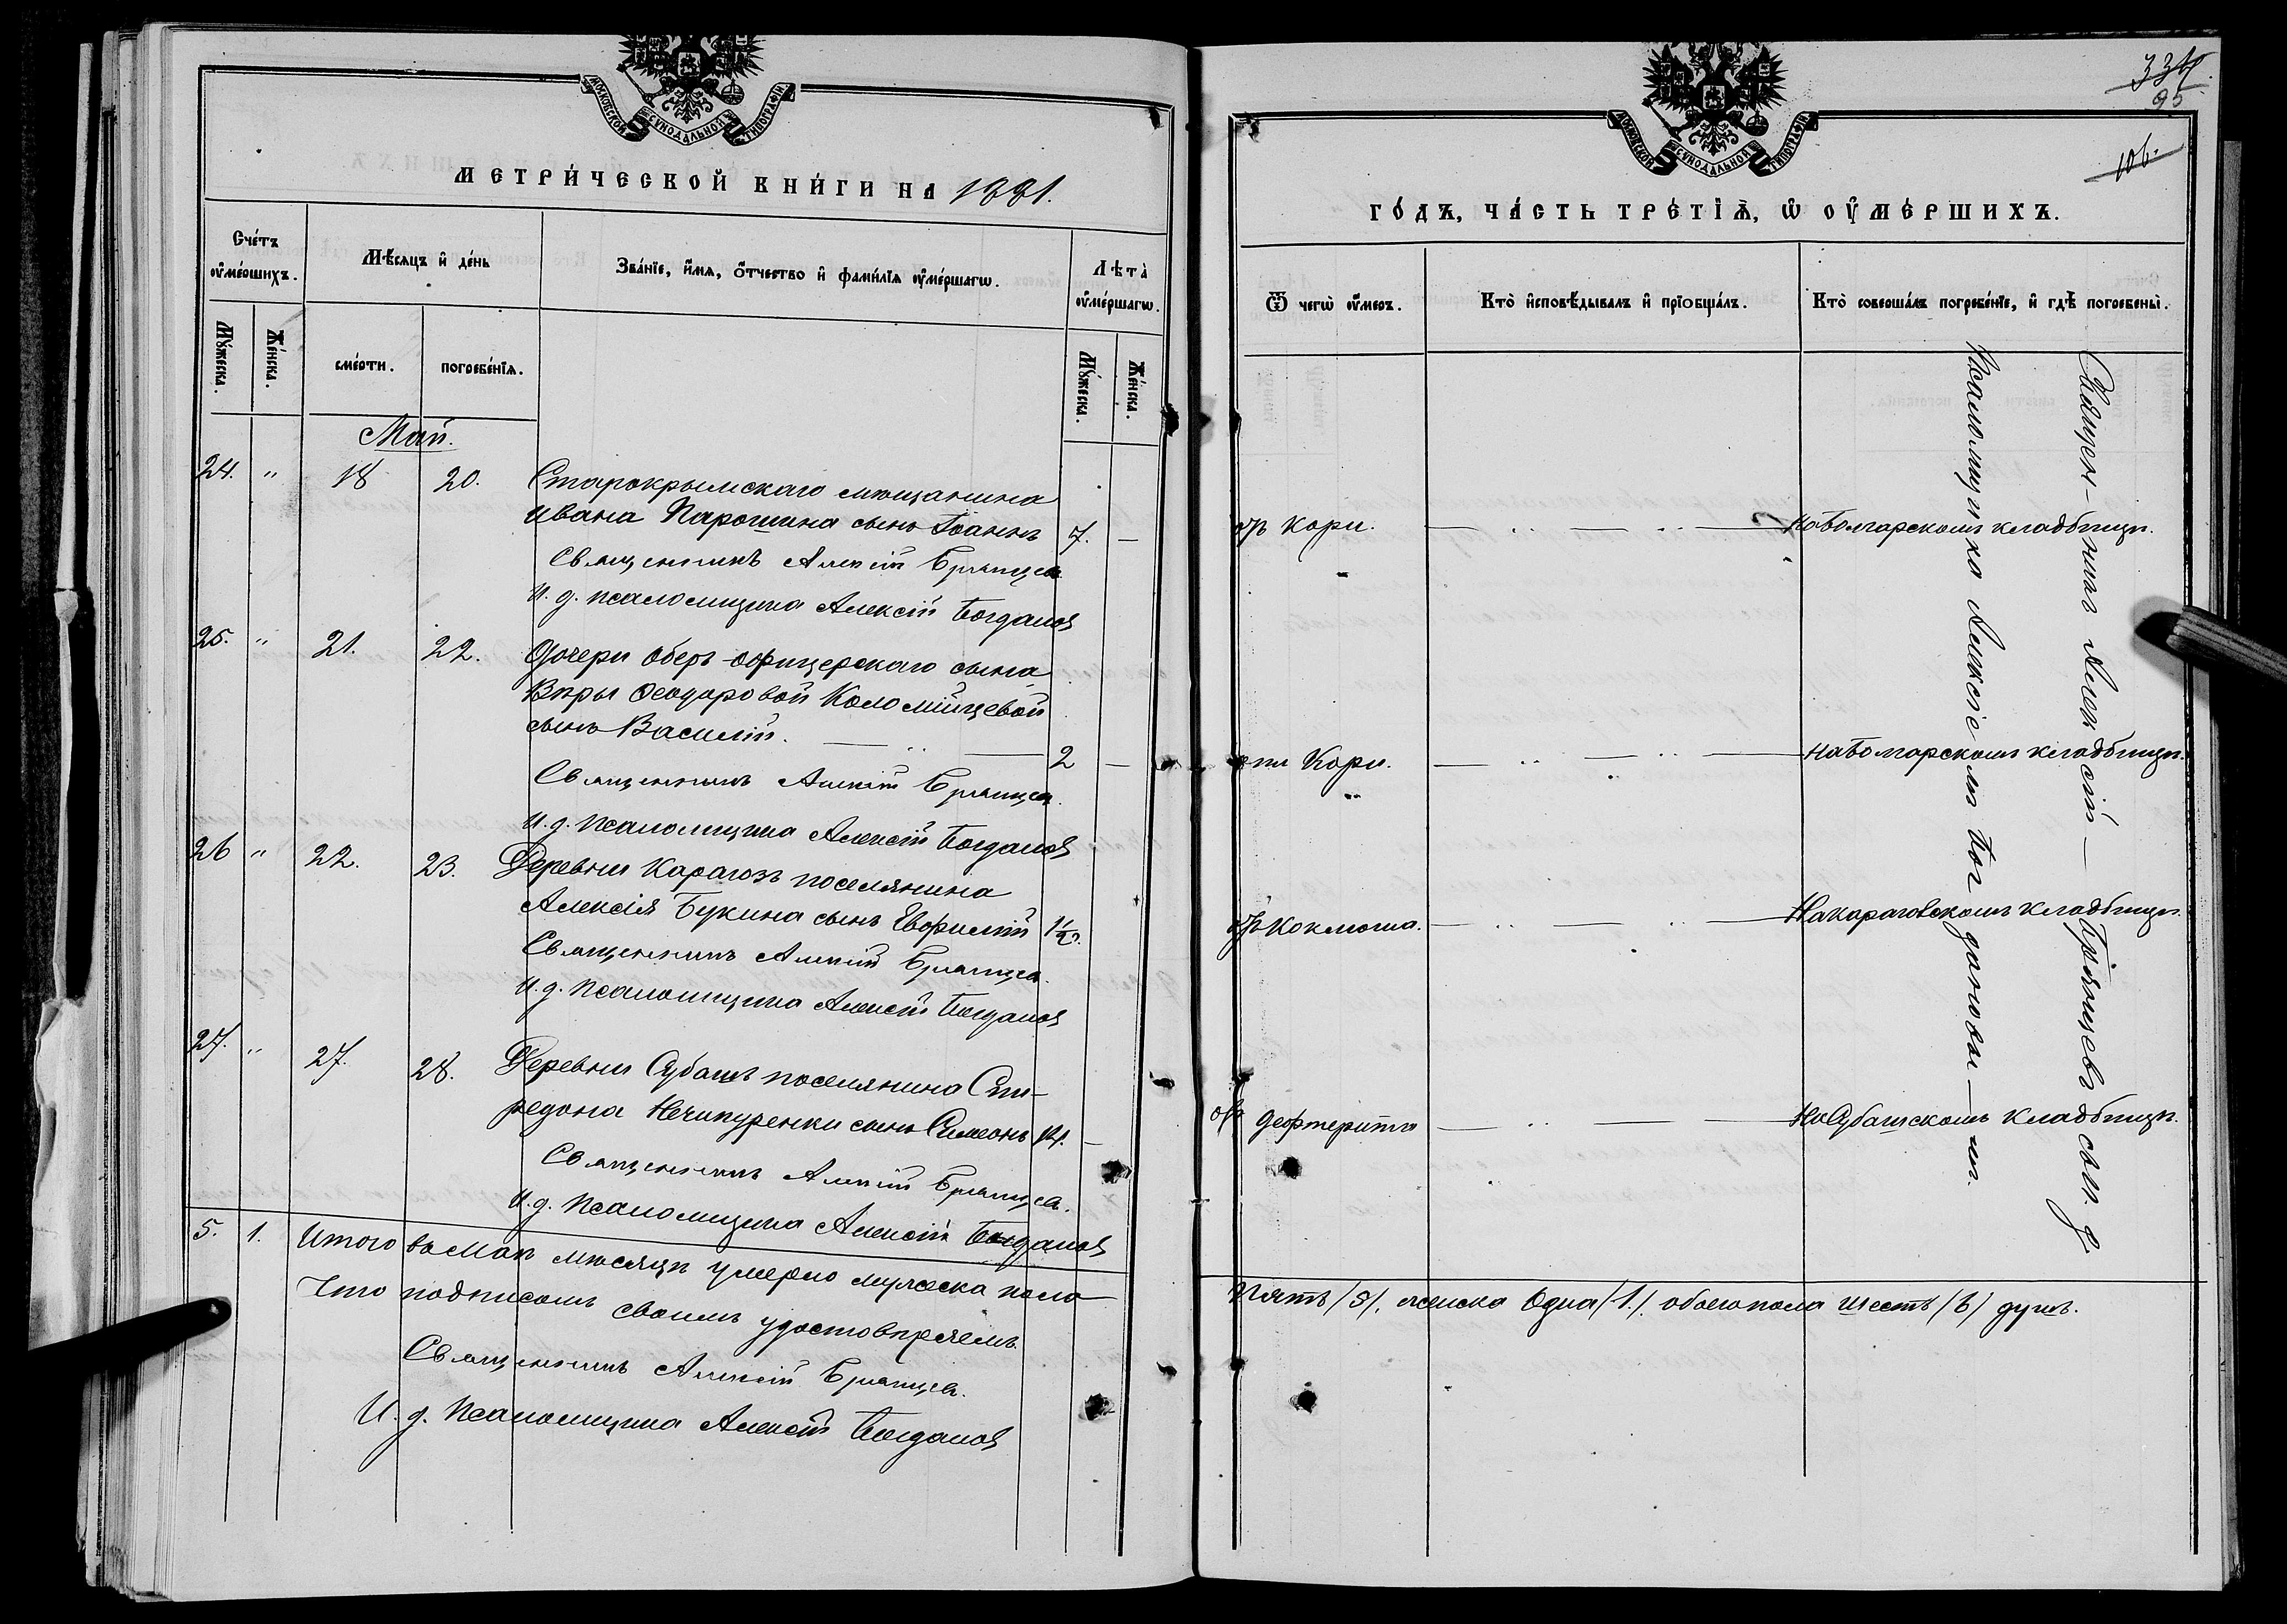 МОСКОВСКОЙ СѴНОДАЛЬНОЙ ТИПОГРАФІИ
МЕТРИ́ЧЕСКОЙ КНИ́ГИ НА 1881.
Сче́тъ оу҆ме́ршихъ.
Мѣ́сяцъ и҆ де́нь
Зва́нїе, и҆́мѧ, ѻ҆́тчество и҆ фами́лїѧ оу҆ме́ршагѡ.
Лѣта̀ оу҆ме́ршагѡ.
Мꙋ́жеска.
Же́нска.
сме́рти.
погребе́нїѧ.
Мꙋ́жеска.
Же́нска.
Май.
24. " 18 20. Старокрымскаго мѣщанина
Ивана Парошина сынъ Іоаннъ 7. —
Священникъ Алексій Брянцев
И. д. псаломщика Алексій Богданов
25. " 21. 22. Дочери Оберъ-офицерскаго сына
Вѣры Ѳеодоровой Коломійцевой
сынъ Василій. — " — 2 —
Священникъ Алексій Брянцев.
И. д. Псаломщика Алексій Богданов
26 " 22. 23. Деревни Карагозъ поселянина
Алексія Букина сынъ Евфимій 1½.
Священникъ Алексій Брянцев.
И. д. Псаломщика Алексій Богданов
27. " 27. 28. Деревни Субашъ поселянина Спи-
редона Нечипуренки сынъ Симеонъ 14. —
Священникъ Алексій Брянцев.
И. д. Псаломщика Алексій Богданов
5. 1. Итого въ Маѣ мѣсяцѣ умерло мужеска пола
Что подписомъ своимъ удостовѣряемъ.
Священникъ Алексій Брянцев.
И. д. Псаломщика Алексій Богданов
МОСКОВСКОЙ СѴНОДАЛЬНОЙ ТИПОГРАФІИ
95
106.
ГО́ДЪ, ЧА́СТЬ ТРЕ́ТІѦ, Ѡ҆ ОУ҆МЕ́РШИХЪ.
Ѿ чегѡ̀ оу҆́меръ.
Кто̀ и҆сповѣ́дывалъ и҆ прїобща́лъ.
Кто̀ соверша́лъ погребе́нїе, и҆ гдѣ̀ погребены̀.
отъ Кори. — " — " — на Болгарскомъ кладбищѣ.
отъ Кори. — " — " — на Болгарскомъ кладбищѣ.
отъ Коклюша. — " — " — На Карагозскомъ кладбищѣ.
отъ Дефтерита — " — — На Субашскомъ кладбищѣ.
Священ-никъ Алексій — Брянцевъ съ и. д.
Псаломщика Алексіемъ Богдановы-мъ.
Пять /5/, женска Одна /1./ обоего пола шесть /6/ душъ.